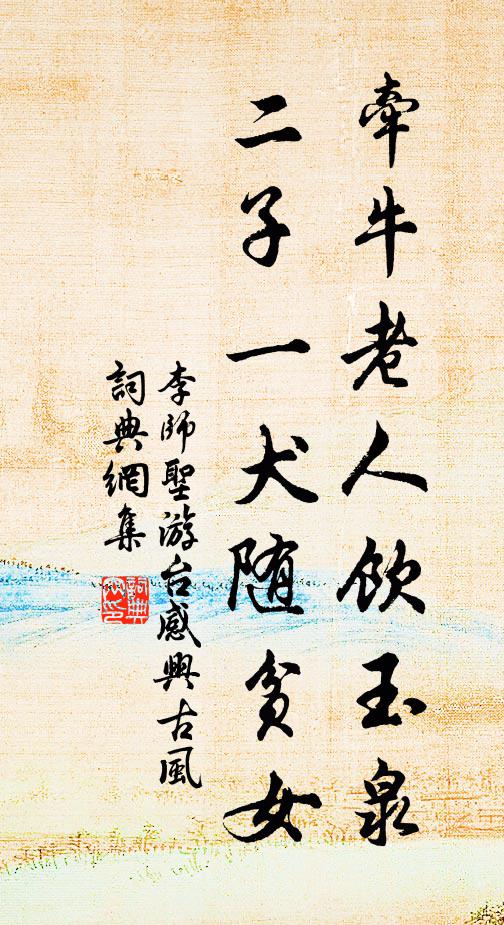 牽牛老人飲玉泉
二子一犬随貧女
李師聖游台感興古風
詞典網集